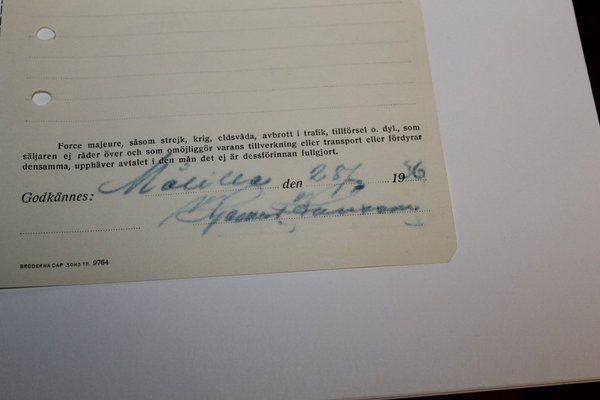 Force majeure, såsom strejk, krig, eldsvåda, avbrott i trafik, tillförsel o. dyl., som
säljaren ej råder över och som omöjliggör varans tillverkning eller transport eller fördyrar
densamma, upphäver avtalet i den mån det ej är dessförinnan fullgjort.
Godkännes: Målilla den 28/ 1936
BRÖDERNA CARLSONS TR. 9764